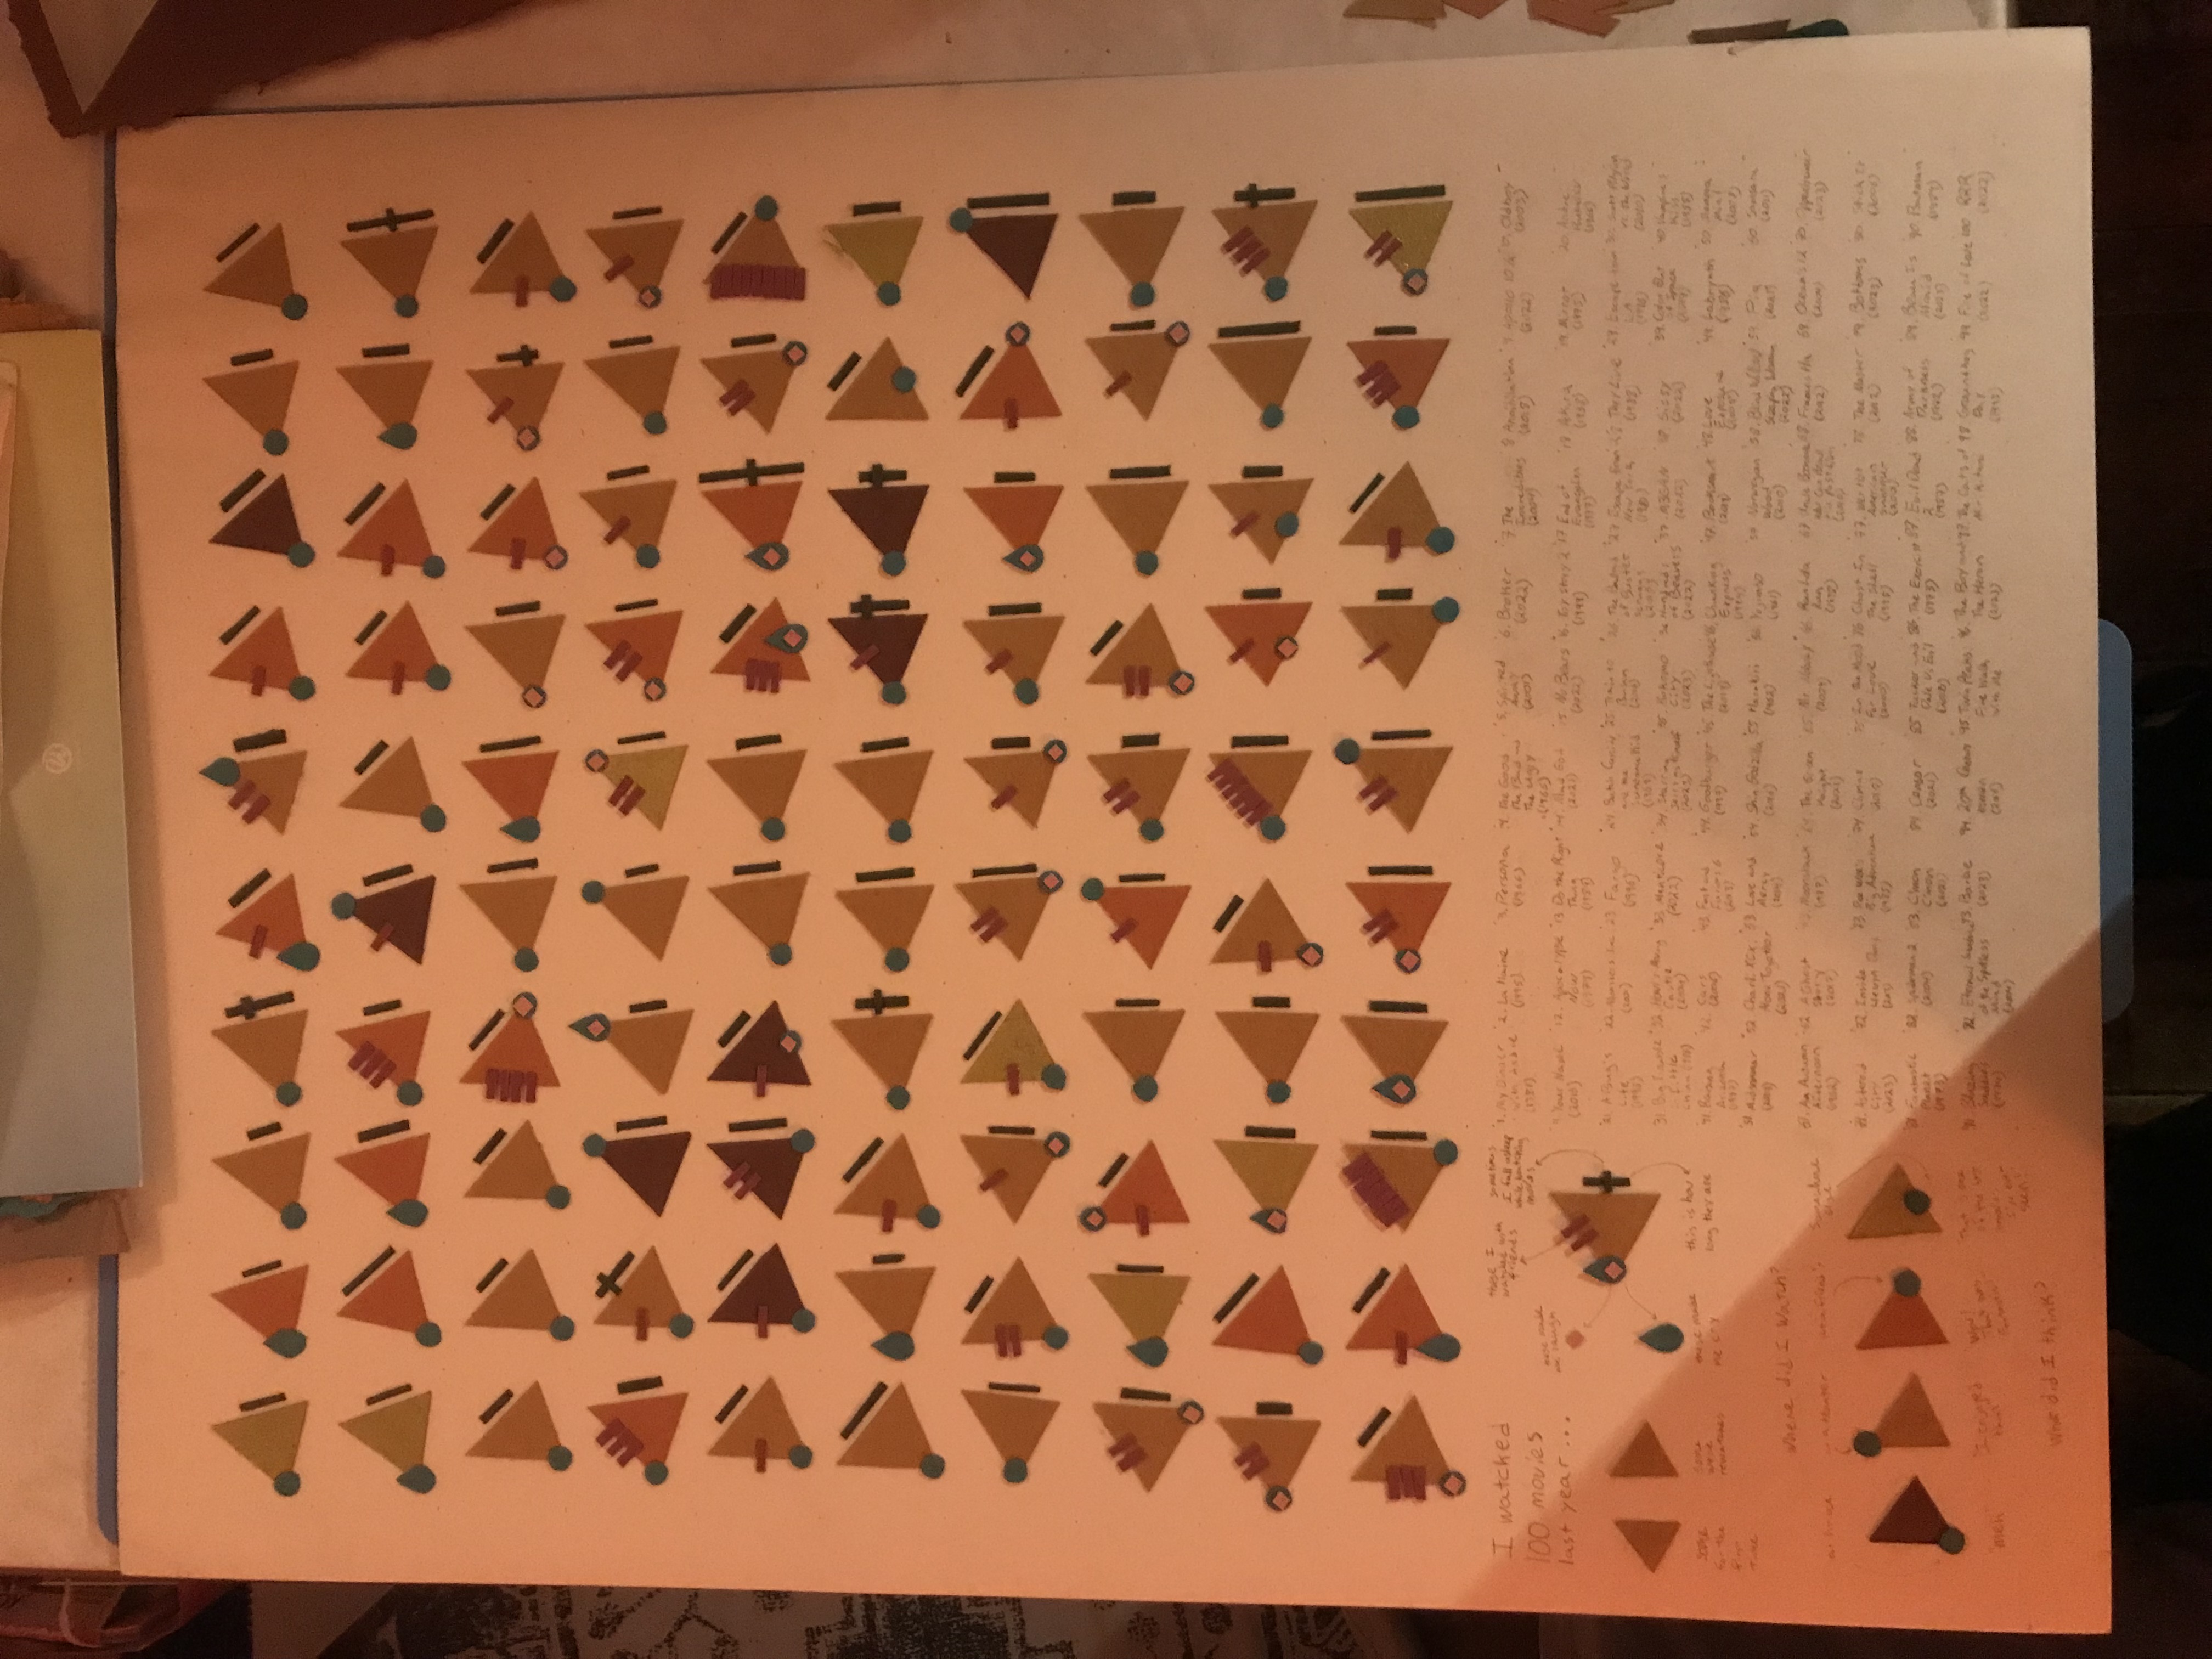 I watched
100 movies
last year...
these I
watched with
friends
sometimes
I fall asleep
while watching
movies
these made
me laugh
these made
me cry
this is how
long they are
some
for the
first
time
some
were
rewatches
Where did I watch?
at home
a theater
a friend's
Somewhere
else
"meh"
I enjoyed
this!
Wow!
That was
fantastic!
That is one
of the best
movies
I've ever
seen!
What did I think?
1. My Dinner
with Andre
(1981)
2. La Haine
(1995)
3. Persona
(1966)
4. The Good
The Bad and
The Ugly
(1966)
5. Spirited
Away
(2001)
6. Brother
(2022)
7. The
Incredibles
(2004)
8. Annihilation
9. Apollo 10 ½
(2022)
10. Oldboy
(2003)
11. Your Name
(2016)
12. Apocalypse
Now
(1979)
13. Do the Right
Thing
(1989)
14. Mad God
(2021)
15. No Bears
(2022)
16. Toy Story 2
(1999)
17. End of
Evangelion
(1997)
18. Akira
(1988)
19. Mirror
(1975)
20. Andrei
Rublev
(1966)
21. A Bug's
Life
(1998)
22. Monsters Inc
(2001)
23. Fargo
(1996)
24. Butch Cassidy
and the
Sundance Kid
(1969)
25. Train to
Busan
(2016)
26. The Ballad
of Buster
Scruggs
27. Escape From
New York
(1981)
28. They Live
(1988)
29. Escape from
L.A.
(1996)
30. Scott Pilgrim
vs. the World
(2010)
31. Big Trouble
in Little
China (1986)
32. Howl's Moving
Castle
(2004)
33. Manticore
(2022)
34.
35.
City
(2023)
36. Hundreds
of Beavers
(2022)
37. M3GAN
(2022)
38. Sissy
(2022)
39. Color Out
of Space
(2019)
40. Vampire's
Kiss
(1988)
41. Raising
Arizona
(1987)
42. Cars
(2006)
43. Fast and
Furious 6
(2013)
44. Goodburger
(1997)
45. The Lighthouse
(2019)
46. Chungking
Express
(1994)
47. Booksmart
(2019)
48. Love
Exposure
(2008)
49. Labyrinth
(1986)
50. Mamma
Mia!
(2008)
51. Midsommar
(2019)
52. Charli XCX:
Alone Together
(2021)
53. Love and
54. Shin Godzilla
(2016)
55. Harakiri
(1962)
56. Yojimbo
(1961)
57. Norwegian
Wood
(2010)
58. Blind Willow
Sleeping Woman
(2022)
59. Pig
(2021)
60. Samsara
(2011)
61. An Autumn
Afternoon
(1962)
62. A Ghost
Story
(2017)
63. Moonstruck
(1987)
64. The Green
Knight
(2021)
65. Mr. Nobody
(2009)
66. Run Lola
Run
(1998)
67. Uncle Boonmee
Who Can Recall
his Past Lives
(2010)
68. Frances Ha
(2012)
69. Ocean's 12
(2004)
70. Oppenheimer
(2023)
71. Asteroid
City
(2023)
72. Inside
Llewyn Davis
(2013)
73. Pee Wee's
Big Adventure
(1985)
74. Climax
75. In the Mood
For Love
(2000)
76. Ghost In
The Shell
(1995)
77. Wet Hot
American
Summer
(2001)
78. The Master
(2012)
79. Bottoms
(2023)
80. Stick It
(2006)
81. Fantastic
Planet
(1973)
82. Spiderman 2
(2004)
83. C'mon
C'mon
(2021)
84. Censor
(2021)
85. Tucker and
Dale Vs. Evil
(2010)
86. The Exorcist
(1973)
87. Evil Dead
2
(1987)
88. Army of
Darkness
(1992)
89. Beau Is
Afraid
(2023)
90.
91. Blazing
Saddles
(1974)
92. Eternal Sunshine
of the Spotless
Mind
(2004)
93. Barbie
(2023)
94. 20th Century
Women
95. Twin Peaks
Fire Walk
With Me
96. The Boy and
The Heron
(2023)
97. The Cats of
Mirikitani
98. Groundhog
Day
(1993)
99. Fire of Love
(2022)
100 RRR
(2022)